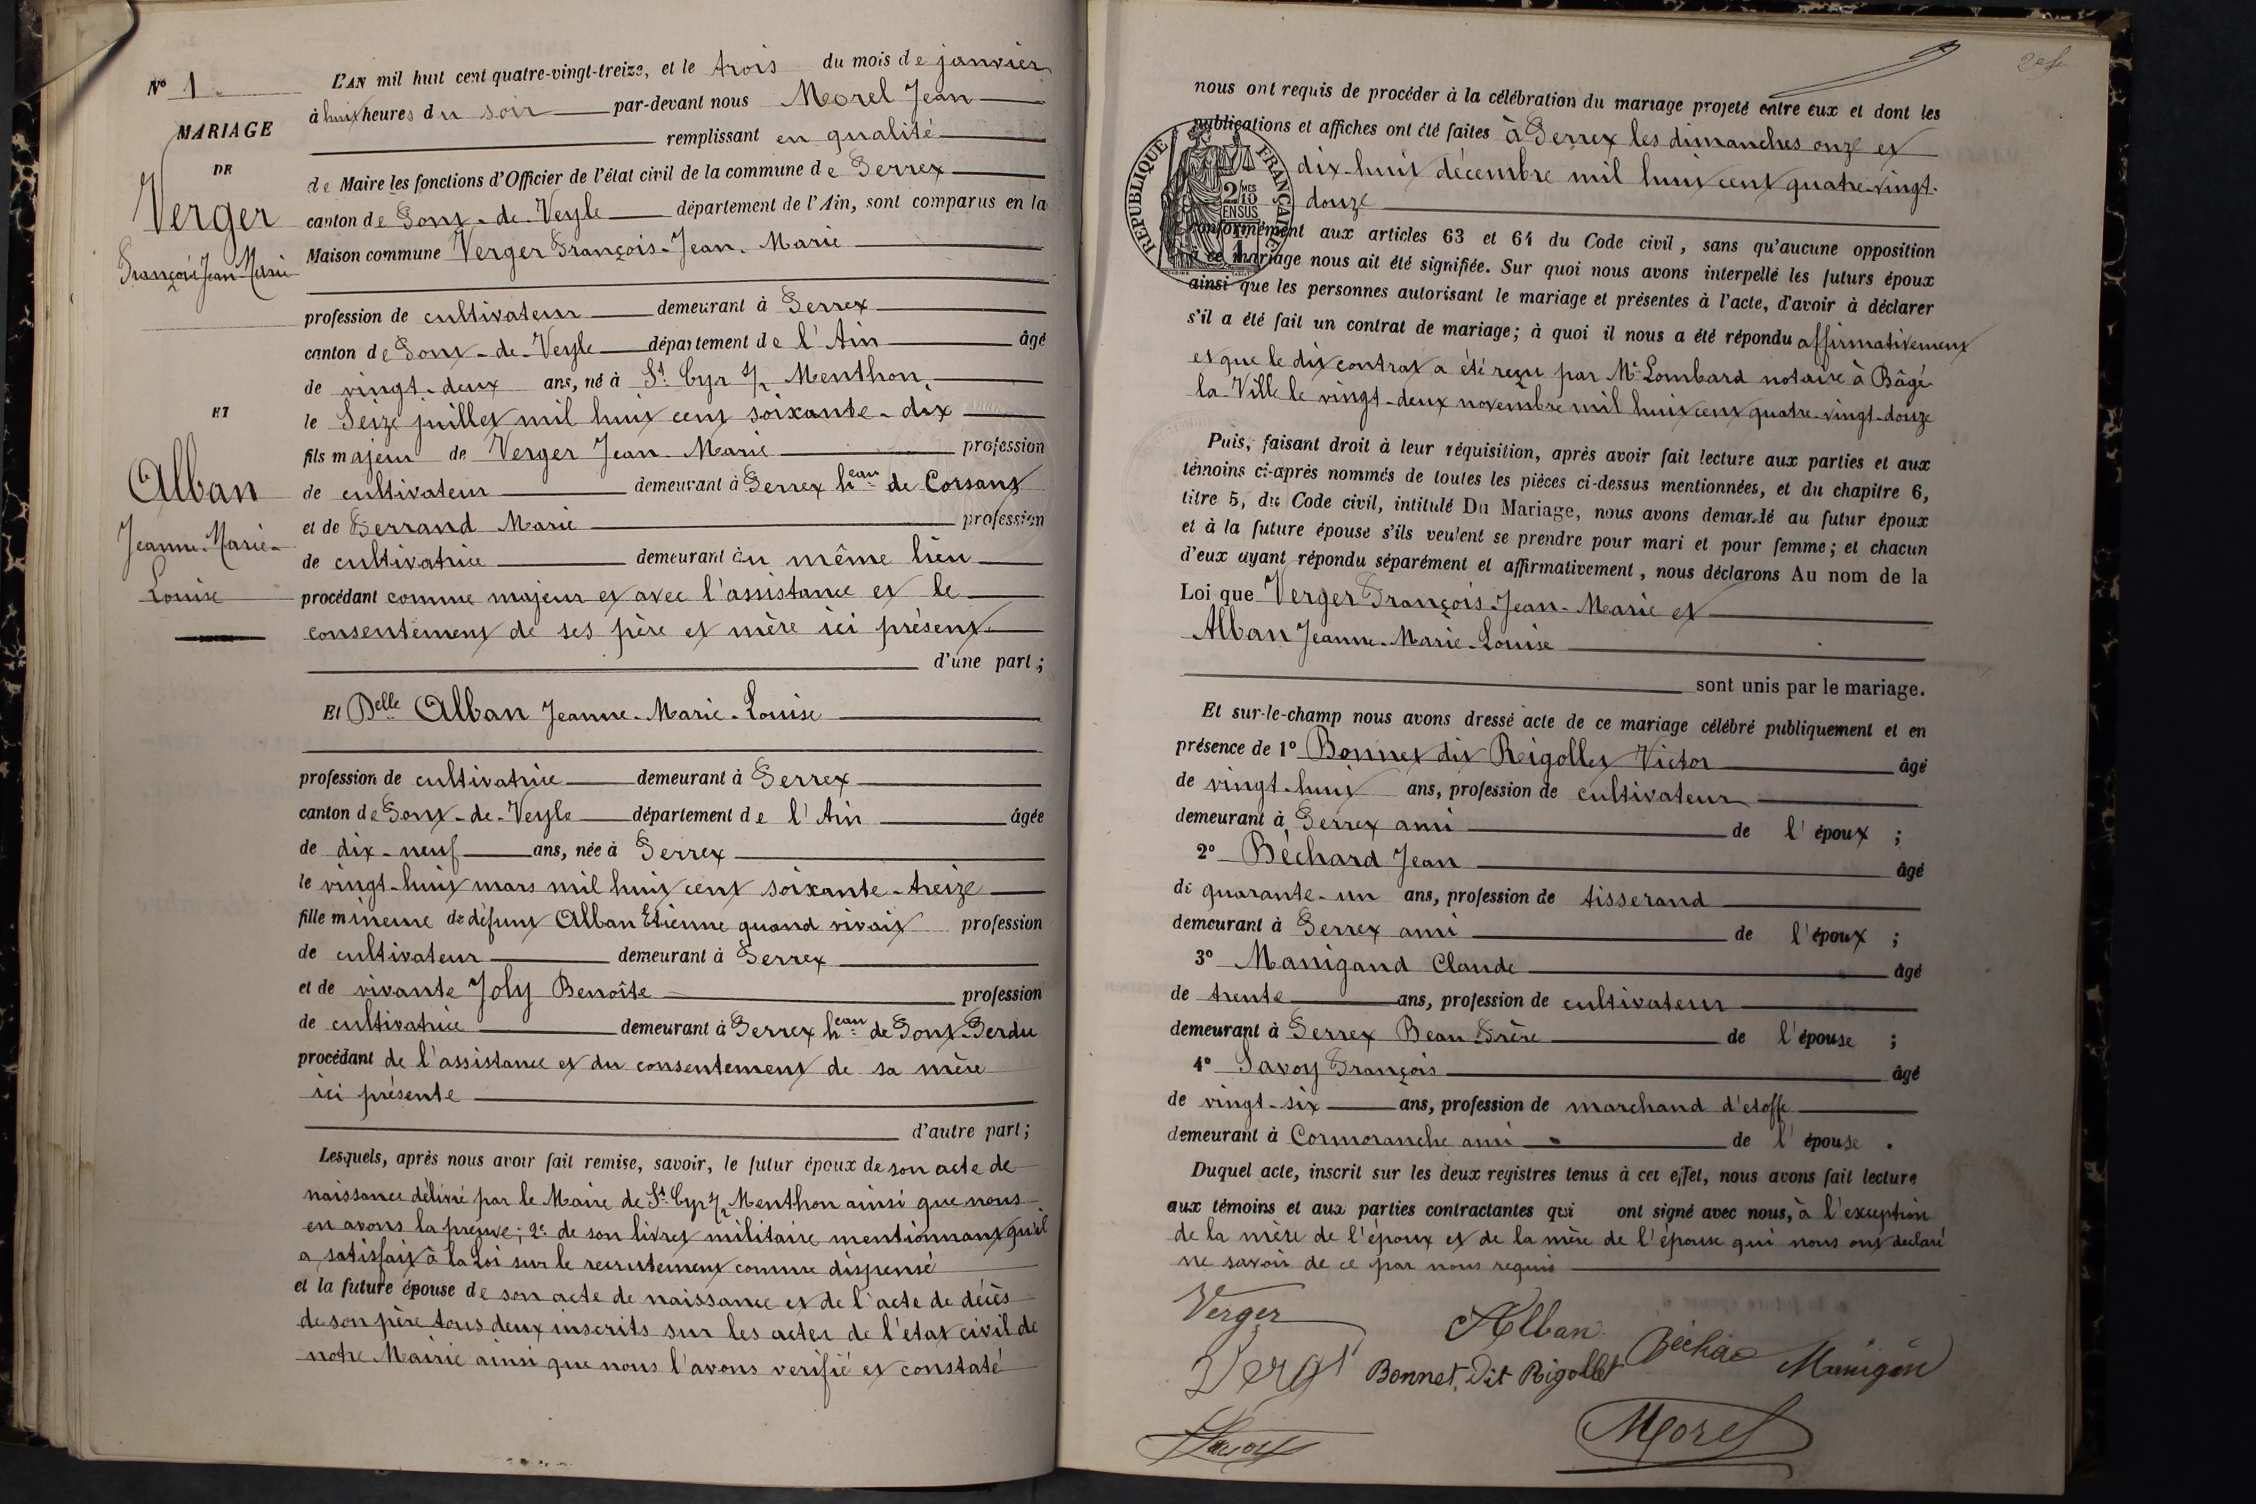 N° 1.
MARIAGE
DE
Verger
François Jean-Marie
ET
Alban
Jeanne-Marie-
Louise
L'AN mil huit cent quatre-vingt-treize, et le trois du mois de janvier
à huit heures du soir par-devant nous Morel Jean
remplissant en qualité
de Maire les fonctions d'Officier de l'état civil de la commune de Perrex
canton de Pont-de-Veyle département de l'Ain, sont comparus en la
Maison commune Verger François-Jean-Marie
profession de cultivateur demeurant à Perrex
canton de Pont-de-Veyle département de l'Ain âgé
de vingt-deux ans, né à St Cyr s/ Menthon,
le Seize juillet mil huit cent soixante-dix
fils majeur de Verger Jean-Marie profession
de cultivateur demeurant à Perrex heau de Corsant
et de Ferrand Marie profession
de cultivatrice demeurant au même lieu
procédant comme majeur et avec l'assistance et le
consentement de ses père et mère ici présent.
d'une part;
Et Delle Alban Jeanne-Marie-Louise
profession de cultivatrice demeurant à Perrex
canton de Pont-de-Veyle département de l'Ain âgée
de dix-neuf ans, née à Perrex
le vingt-huit mars mil huit cent soixante-treize
fille mineure de défunt Alban Etienne quand vivait profession
de cultivateur demeurant à Perrex
et de vivante Joly Benoîte profession
de cultivatrice demeurant à Perrex heau de Pont-Perdu
procédant de l'assistance et du consentement de sa mère
ici présente
d'autre part;
Lesquels, après nous avoir fait remise, savoir, le futur époux de son acte de
naissance délivré par le Maire de St Cyr s/ Menthon ainsi que nous
en avons la preuve; 2° de son livret militaire mentionnant qu'il
a satisfait à la Loi sur le recrutement comme dispensé
et la future épouse de son acte de naissance et de l'acte de décès
de son père tous deux inscrits sur les actes de l'état civil de
notre Mairie ainsi que nous l'avons verifié et constaté
nous ont requis de procéder à la célébration du mariage projeté entre eux et dont les
publications et affiches ont été faites à Perrex les dimanches onze et
dix-huit décembre mil huit cent quatre-vingt-
douze
REPUBLIQUE FRANÇAISE
2/10MES
EN SUS
conformément aux articles 63 et 64 du Code civil, sans qu'aucune opposition
à ce mariage nous ait été signifiée. Sur quoi nous avons interpellé les futurs époux
ainsi que les personnes autorisant le mariage et présentes à l'acte, d'avoir à déclarer
s'il a été fait un contrat de mariage; à quoi il nous a été répondu affirmativement
et que le dit contrat a été reçu par Me Lombard notaire à Bâgé-
la-Ville le vingt-deux novembre mil huit cent quatre-vingt-douze
Puis, faisant droit à leur réquisition, après avoir fait lecture aux parties et aux
témoins ci-après nommés de toutes les pièces ci-dessus mentionnées, et du chapitre 6,
titre 5, du Code civil, intitulé Du Mariage, nous avons demandé au futur époux
et à la future épouse s'ils veulent se prendre pour mari et pour femme; et chacun
d'eux ayant répondu séparément et affirmativement, nous déclarons Au nom de la
Loi que Verger François-Jean-Marie et
Alban Jeanne-Marie-Louise
sont unis par le mariage.
Et sur-le-champ nous avons dressé acte de ce mariage célébré publiquement et en
présence de 1° Bonnet dit Rigollet Victor âgé
de vingt-huit ans, profession de cultivateur
demeurant à Perrex ami de l'époux;
2° Béchard Jean âgé
de quarante-un ans, profession de tisserand
demeurant à Perrex ami de l'époux;
3° Manigand Claude âgé
de trente ans, profession de cultivateur
demeurant à Perrex Beau-Frère de l'épouse;
4° Savoy François âgé
de vingt-six ans, profession de marchand d'etoffe
demeurant à Cormoranche ami de l'épouse.
Duquel acte, inscrit sur les deux registres tenus à cet effet, nous avons fait lecture
aux témoins et aux parties contractantes qui ont signé avec nous, à l'exception
de la mère de l'époux et de la mère de l'épouse qui nous ont declaré
ne savoir de ce par nous requis
Verger
Alban
Bonnet Dit Rigollet
Morel